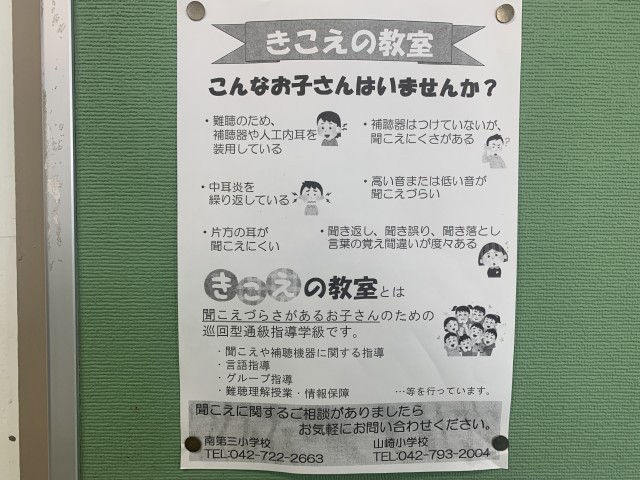 きこえの教室
こんなお子さんはいませんか？
・難聴のため、
補聴器や人工内耳を
装用している
・補聴器はつけていないが、
聞こえにくさがある
・中耳炎を
繰り返している
・高い音または低い音が
聞こえづらい
・片方の耳が
聞こえにくい
・聞き返し、聞き誤り、聞き落とし
言葉の覚え間違いが度々ある
きこえの教室とは
聞こえづらさがあるお子さんのための
巡回型通級指導学級です。
・聞こえや補聴機器に関する指導
・言語指導
・グループ指導
・難聴理解授業・情報保障 …等を行っています。
聞こえに関するご相談がありましたら
お気軽にお問い合わせください。
南第三小学校
TEL:042-722-2663
山崎小学校
TEL:042-793-2004